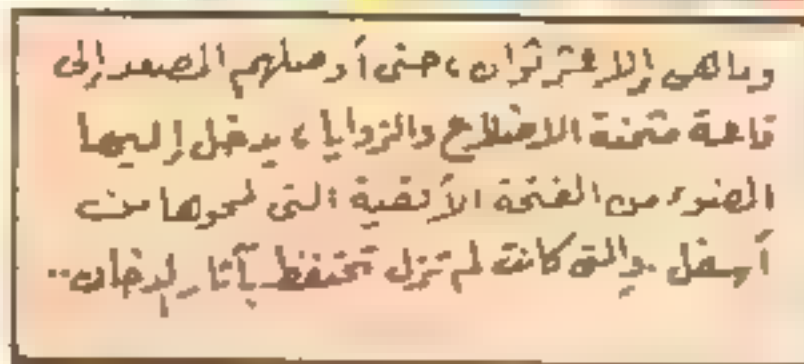 وما هى إلا عشر ثوان ، حتى أوصلهم المصعد إلى
قاعة مثمنة الاضلاع والزوايا ، يدخل إليها
الضوء من الفتحة الأفقية التى لمحوها من
أسفل . والتى كانت لم تزل تحتفظ بآثار الدخان ..